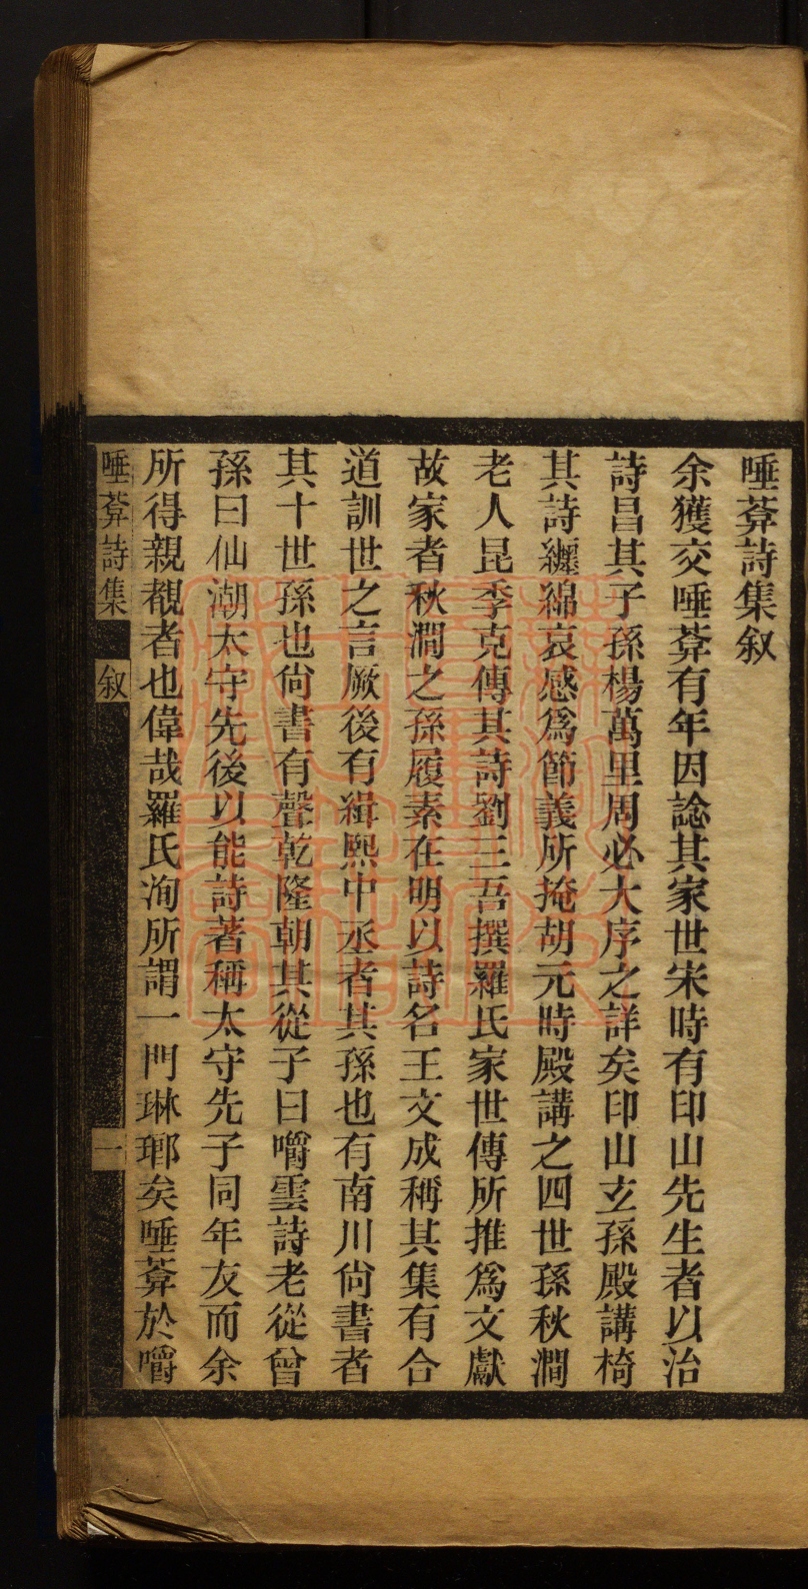 唾葊詩集叙
余獲交唾葊有年因諗其家世宋時有印山先生者以治
詩昌其子孫楊萬里周必大序之詳矣印山玄孫殿講椅
其詩纏綿哀感爲節義所掩胡元時殿講之四世孫秋澗
老人昆季克傳其詩劉三吾撰羅氏家世傳所推爲文獻
故家者秋澗之孫履素在明以詩名王文成稱其集有合
道訓世之言厥後有緝熙中丞者其孫也有南川尙書者
其十世孫也尙書有聲乾隆朝其從子曰嚼雲詩老從曾
孫曰仙潮太守先後以能詩著稱太守先子同年友而余
所得親覩者也偉哉羅氏洵所謂一門琳瑯矣唾葊於嚼
唾葊詩集 叙 一